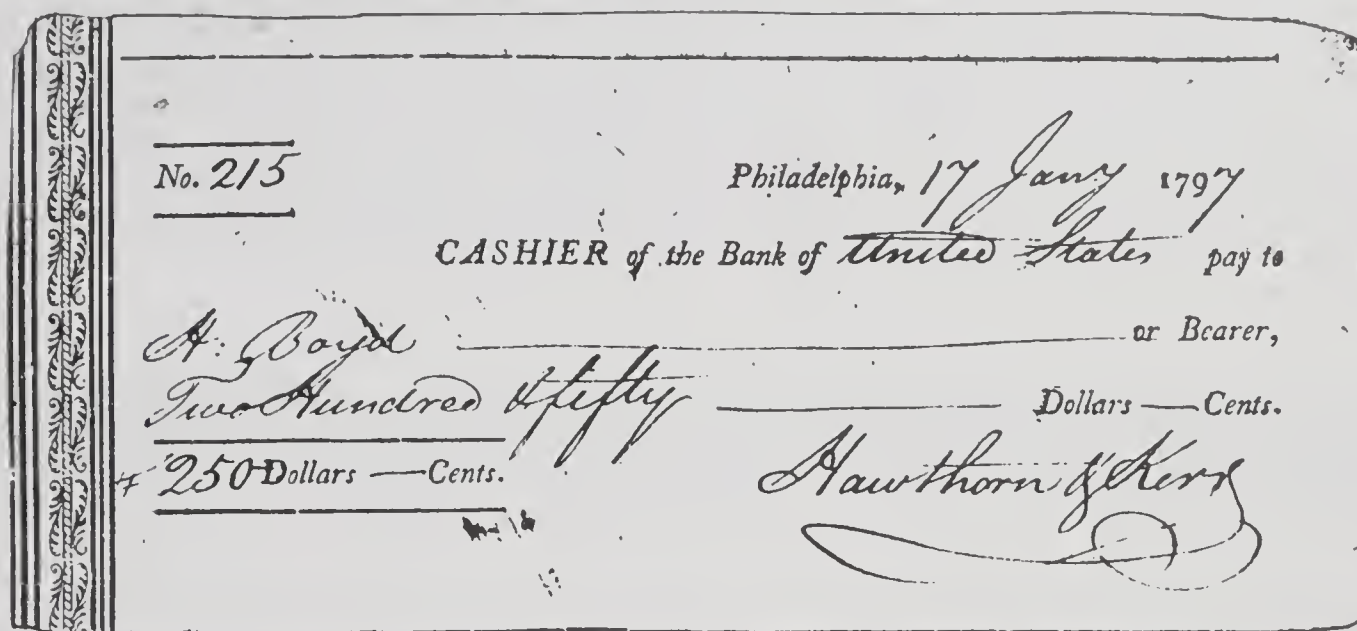 No. 215
Philadelphia, 17 Jany 1797
CASHIER of the Bank of United States pay to
A: Boyd or Bearer,
Two Hundred & fifty Dollars — Cents.
250 Dollars — Cents.
Hawthorn & Kerr